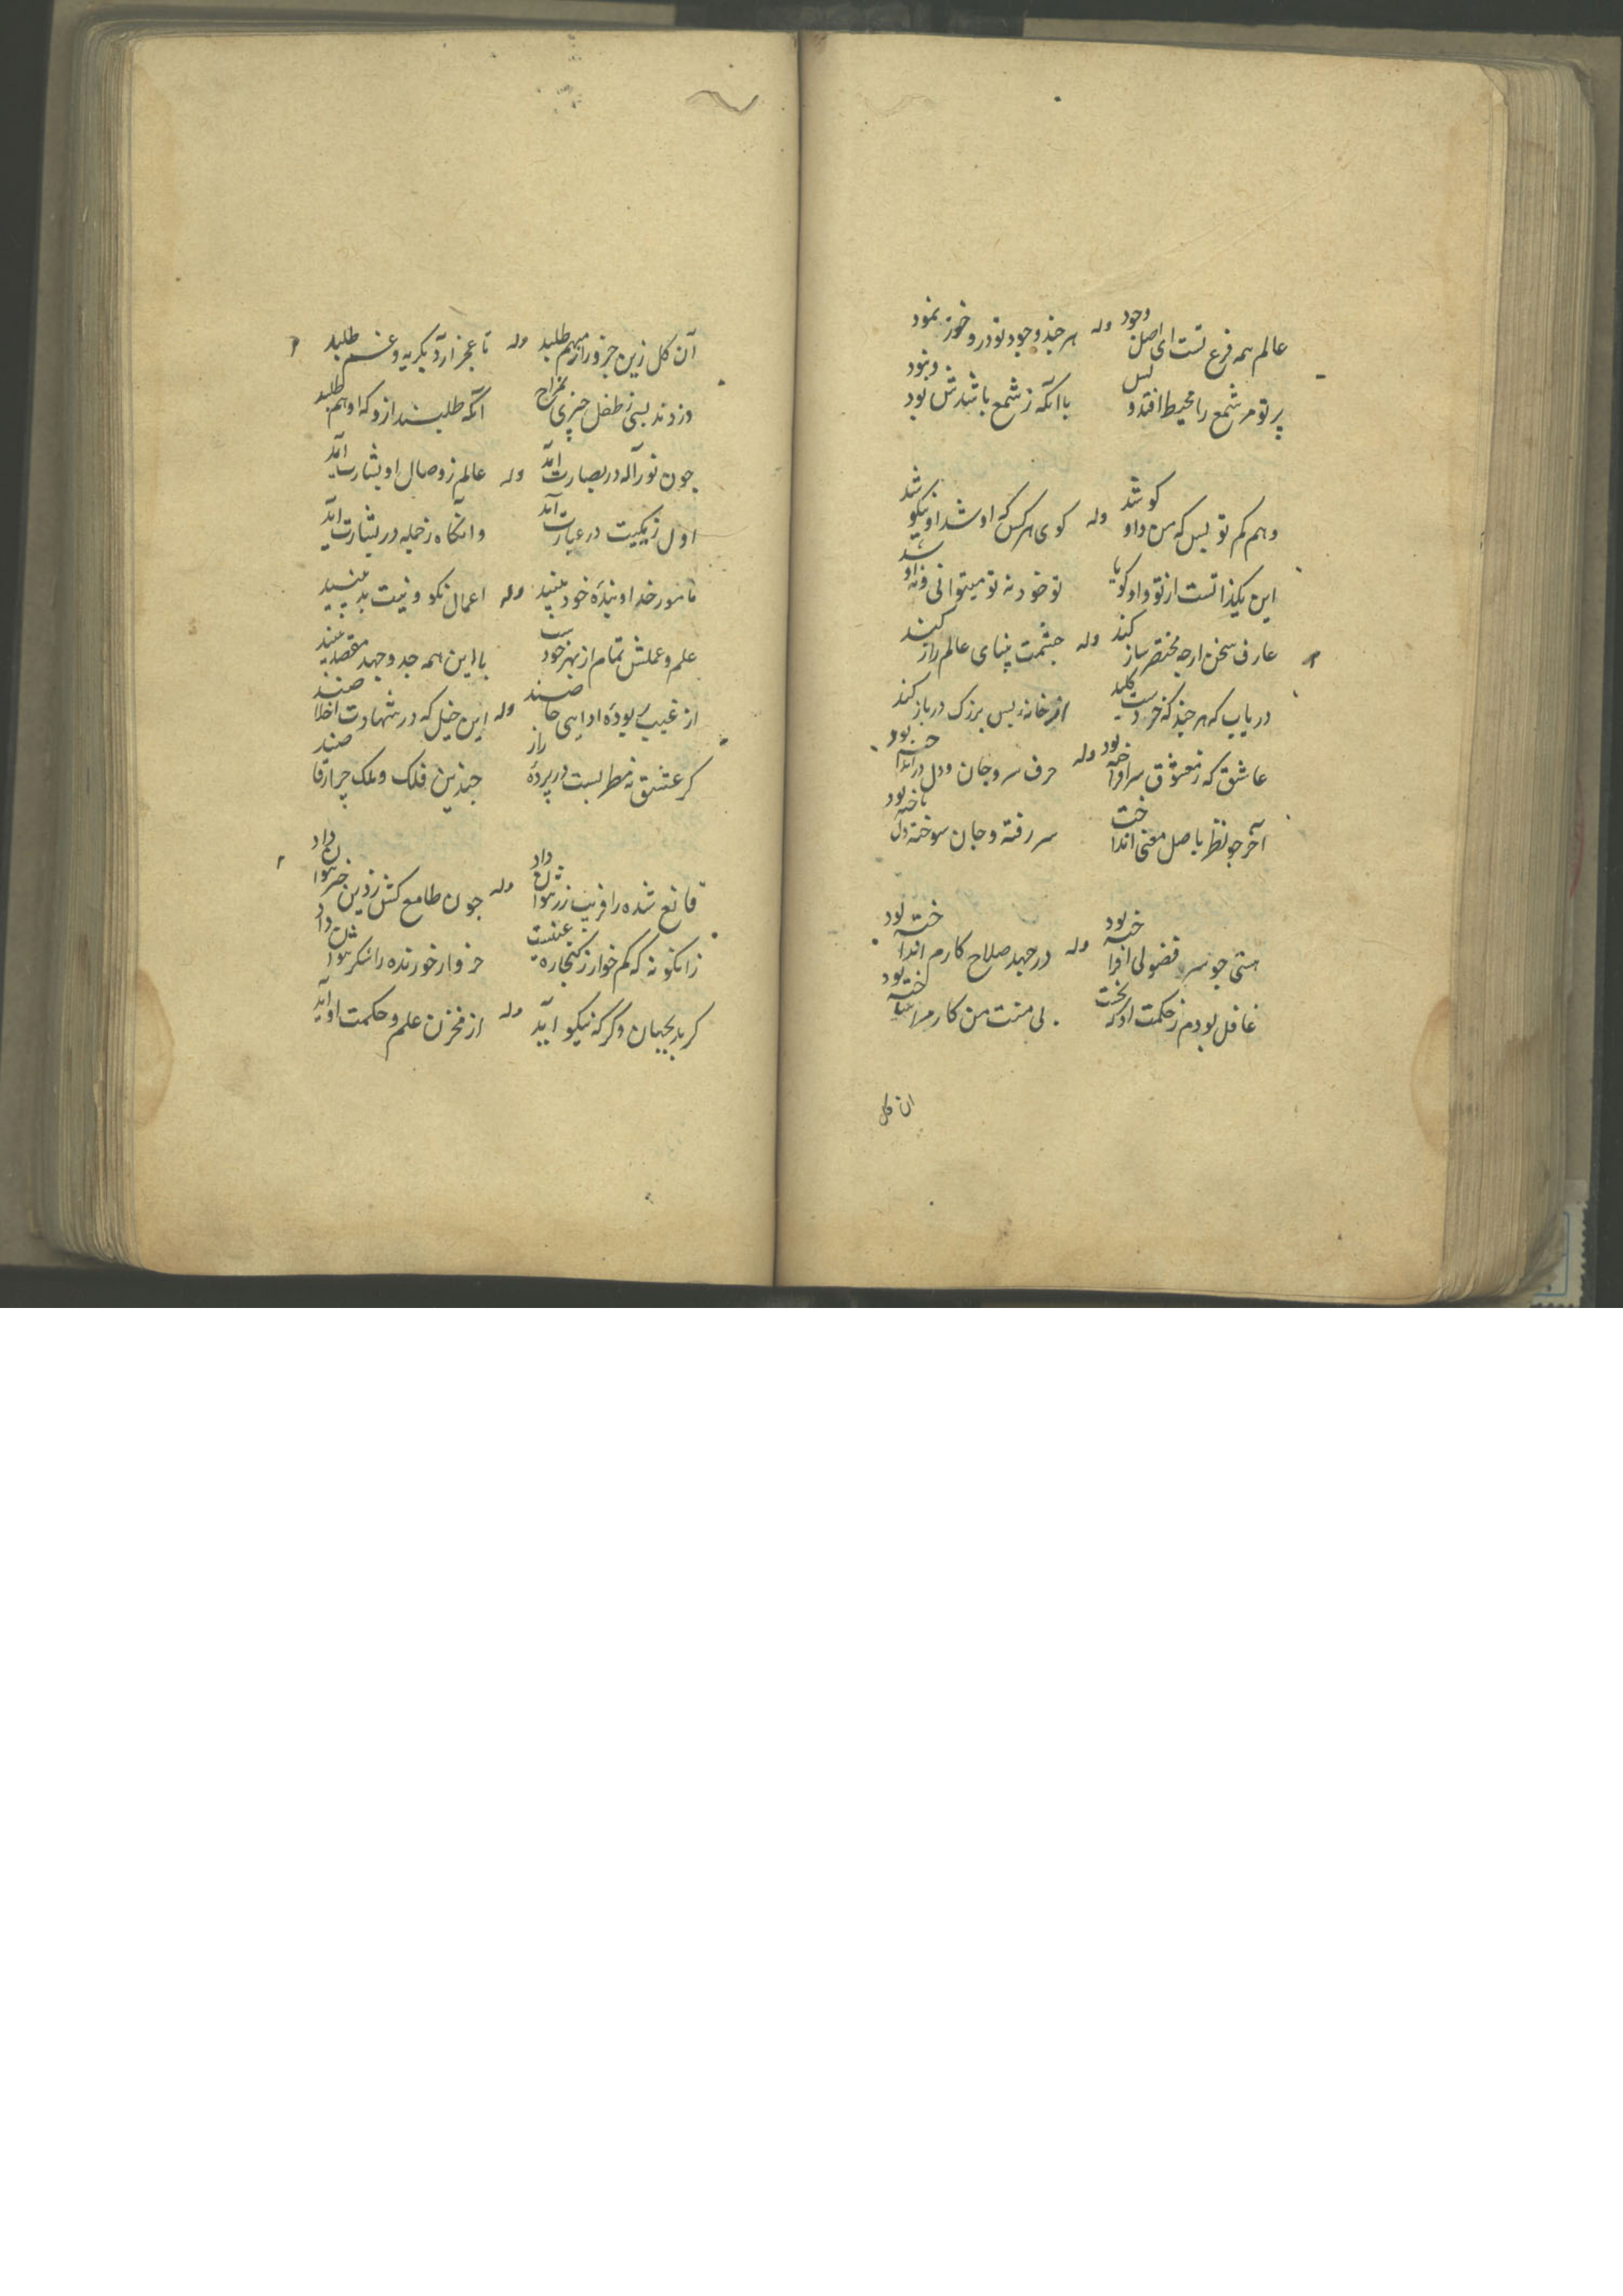 عالم همه فرع تست ای اصل وجود وله هر چند وجود تو در و خوز نمود
پرتو مر شمع را محیط افتد و لیس با آنکه ز شمع باشدش بود و نبود
وهم کم تو بس که من و او کو شد وله کوی هر کس که او شد او نیکو شد
این یکذاتست از تو و او کویا تو خود نه تو میتوانی و نه او شد
عارف سخن ارچه مختصر ساز کند وله چشمت پنای عالم راز کند
دریاب که هر چند که خردست کلید از خانه بس بزرک در باز کند
عاشق که ز معشوق سرافراخته بود وله حرف سر و جان و دل در انداخته بود
آخر چو نظر باصل معنی انداخت سر رفته و جان سوخته دل باخته بود
هستی چو سر فضولی افراخته بود وله در جهد صلاح کارم انداخته بود
غافل بودم ز حکمت او که بی منت من کارم را ساخته بود
ان کل
آن کل زین جزو راز مبهم طلبد وله تا عجز آرد بکریه و غم طلبد
دزدند بسی ز طفل چیزی بمزاح آنکه طلبند ازو که او هم طلبد
چون نور آله در بصارت آمد وله عالم ز وصال او بشارت آمد
اول ز یکیت در عبارت آمد وانگاه ز جمله در بشارت آمد
مامور خدا و بنده خود بیند وله اعمال نکو و نیت بد بیند
علم و عملش تمام از بهر خودست با این همه جد و جهد مقصد بیند
از غیب ربوده ادایی خاصند وله این خیل که در شهادت اخلاصند
کر عشق نه مطربست در پرده راز چندین فلک و ملک چرا رقاصند
قانع شده را فریب زر نتوان داد وله چون طامع کش زدین خبر نتوان داد
زانکونه که کم خوار ز کنجاره غنیست خروار خورنده را شکر نتوان داد
کر بد بجهان وکر که نیکو آید وله از مخزن علم و حکمت او آید